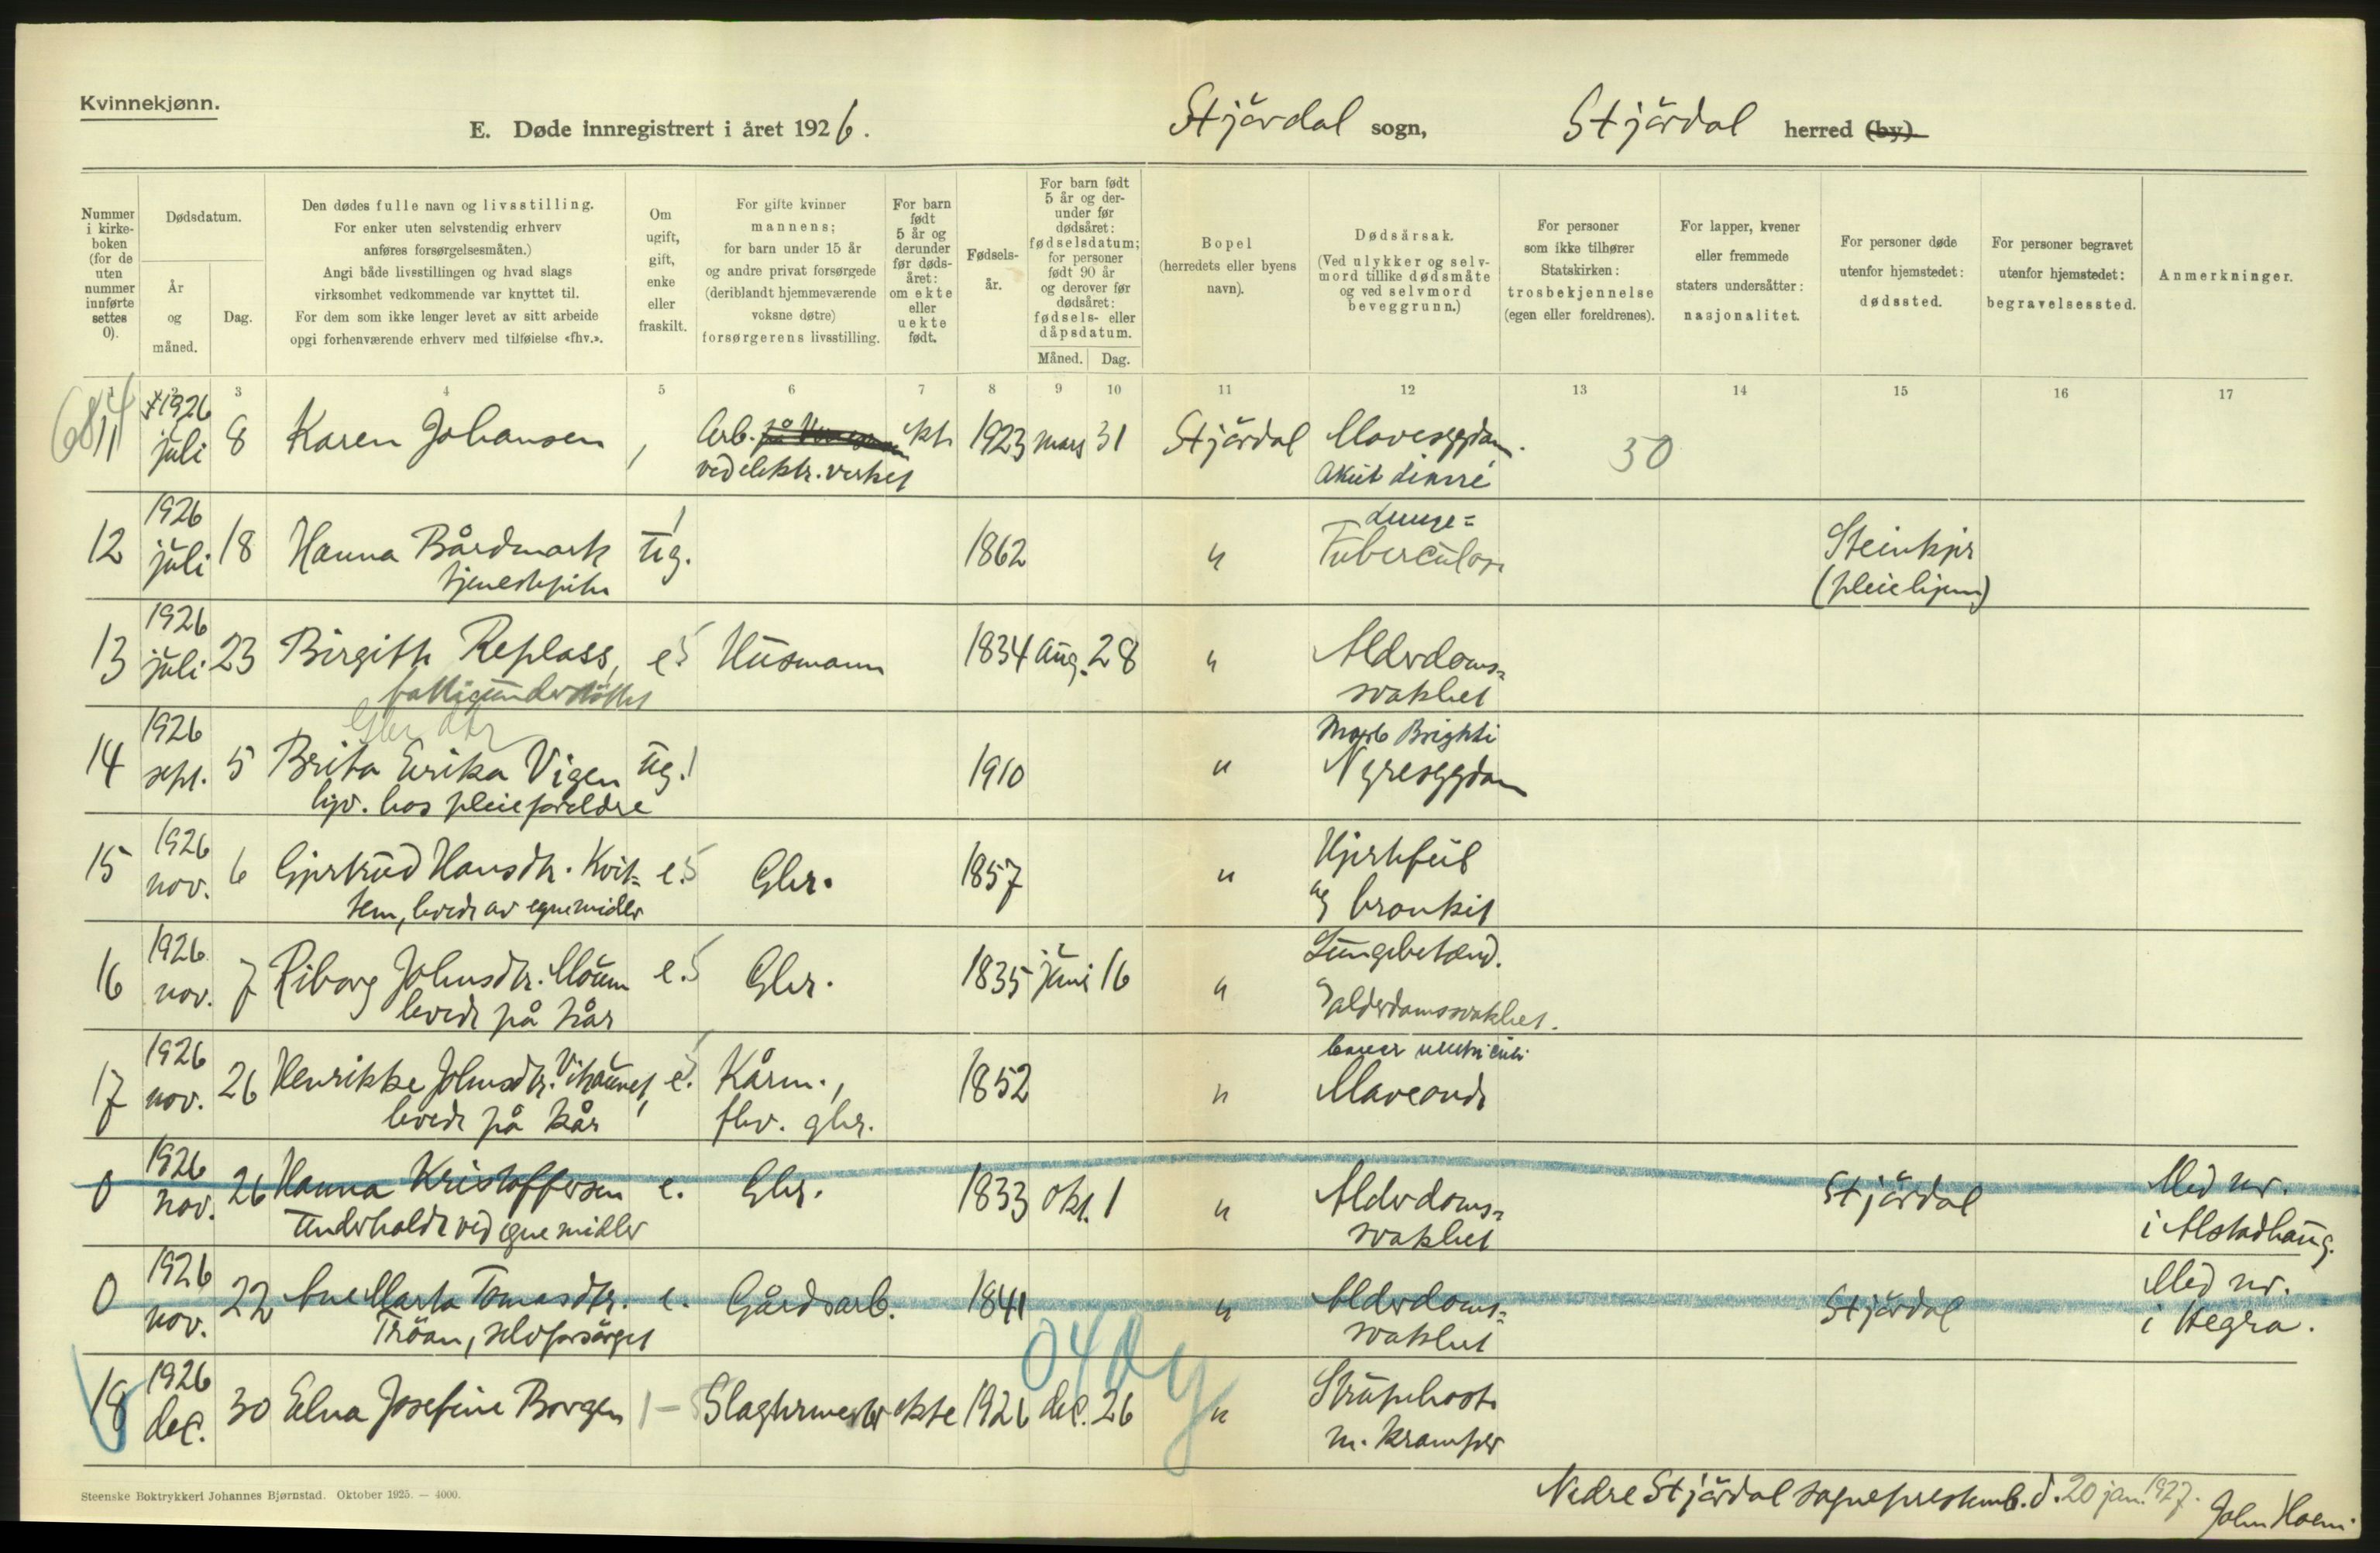 Kvinnekjønn.
E. Døde innregistrert i året 1926. Stjördal sogn, Stjördal herred (by).
Nummer i kirkeboken (for de uten nummer innførte settes 0).
Dødsdatum.
År og måned.
Dag.
Den dødes fulle navn og livsstilling.
For enker uten selvstendig erhverv
anføres forsørgelsesmåten.)
Angi både livsstillingen og hvad slags
virksomhet vedkommende var knyttet til.
For dem som ikke lenger levet av sitt arbeide
opgi forhenværende erhverv med tilføielse «fhv.».
Om ugift, gift, enke eller fraskilt.
For gifte kvinner
mannens;
for barn under 15 år
og andre privat forsørgede
(deriblandt hjemmeværende
voksne døtre)
forsørgerens livsstilling.
For barn født 5 år og derunder før dødsåret: om ekte eller uekte født.
Fødselsår.
For barn født 5 år og derunder før dødsåret: fødselsdatum; for personer født 90 år og derover før dødsåret: fødsels- eller dåpsdatum.
Måned. Dag.
Bopel
(herredets eller byens
navn).
Dødsårsak.
(Ved ulykker og selvmord tillike dødsmåte og ved selvmord beveggrunn.)
For personer
som ikke tilhører
Statskirken:
trosbekjennelse
(egen eller foreldrenes).
For lapper, kvener
eller fremmede
staters undersåtter:
nasjonalitet.
For personer døde
utenfor hjemstedet:
dødssted.
For personer begravet
utenfor hjemstedet:
begravelsessted.
Anmerkninger.
1 3 4 5 6 7 8 9 10 11 12 13 14 15 16 17
11 1926 juli 8 Karen Johansen Arb. ved elektr. verket ekte 1923 mars 31 Stjördal Mavesygdom. 30
Akut
12 1926 juli 18 Hanna Bårdmark ug. 1862 " Lunge=
Tuberculose Steinkjer
tjenestepike (pleiehjem)
13 1926 juli 23 Birgith Replass, e. 5 Husmann 1834 aug. 28 " Alderdoms=
fattigunderstöttet svakhet
14 1926 sept. 5 Brita Erika Vigen ug. 1 1910 " Morb Brighti
Nyresygdom
hjv. hos pleieforeldre
15 1926 nov. 6 Gjertrud Hansdtr. Kvit= e. 5 Gbr. 1857 " Hjertefeil
tem, levede av egne midler og bronkit
16 1926 nov. 7 Riborg Johnsdtr. Moum e. 5 Gbr. 1835 juni 16 " Lungebetænd.
levede på kår og alderdomssvakhet.
17 1926 nov. 26 Henrikke Johnsdtr. Vikaunet, e. Kårm., 1852 " Cancer ventriculi
Maveonde
levede på kår fhv. gbr.
0 1926 nov. 26 Hanna Kristoffersen e. Gbr. 1833 okt. 1 " Alderdoms= Stjördal Med nr.
Underholdt ved egne midler svakhet i Alstadhaug.
0 1926 nov. 22 Ane Marta Tomasdtr. e. Gårdsarb. 1841 " Alderdoms= Stjördal Med nr.
Tröan, selvforsörget svakhet i Hegra.
18 1926 dec. 30 Elna Josefine Borgen 1 – Slagtermester ekte 1926 dec. 26 " Strupehoste
m. kramper
Steenske Boktrykkeri Johannes Bjørnstad. Oktober 1925. — 4000.
Nedre Stjördal sogneprestemb. d. 20 jan. 1927.
John Hoem.